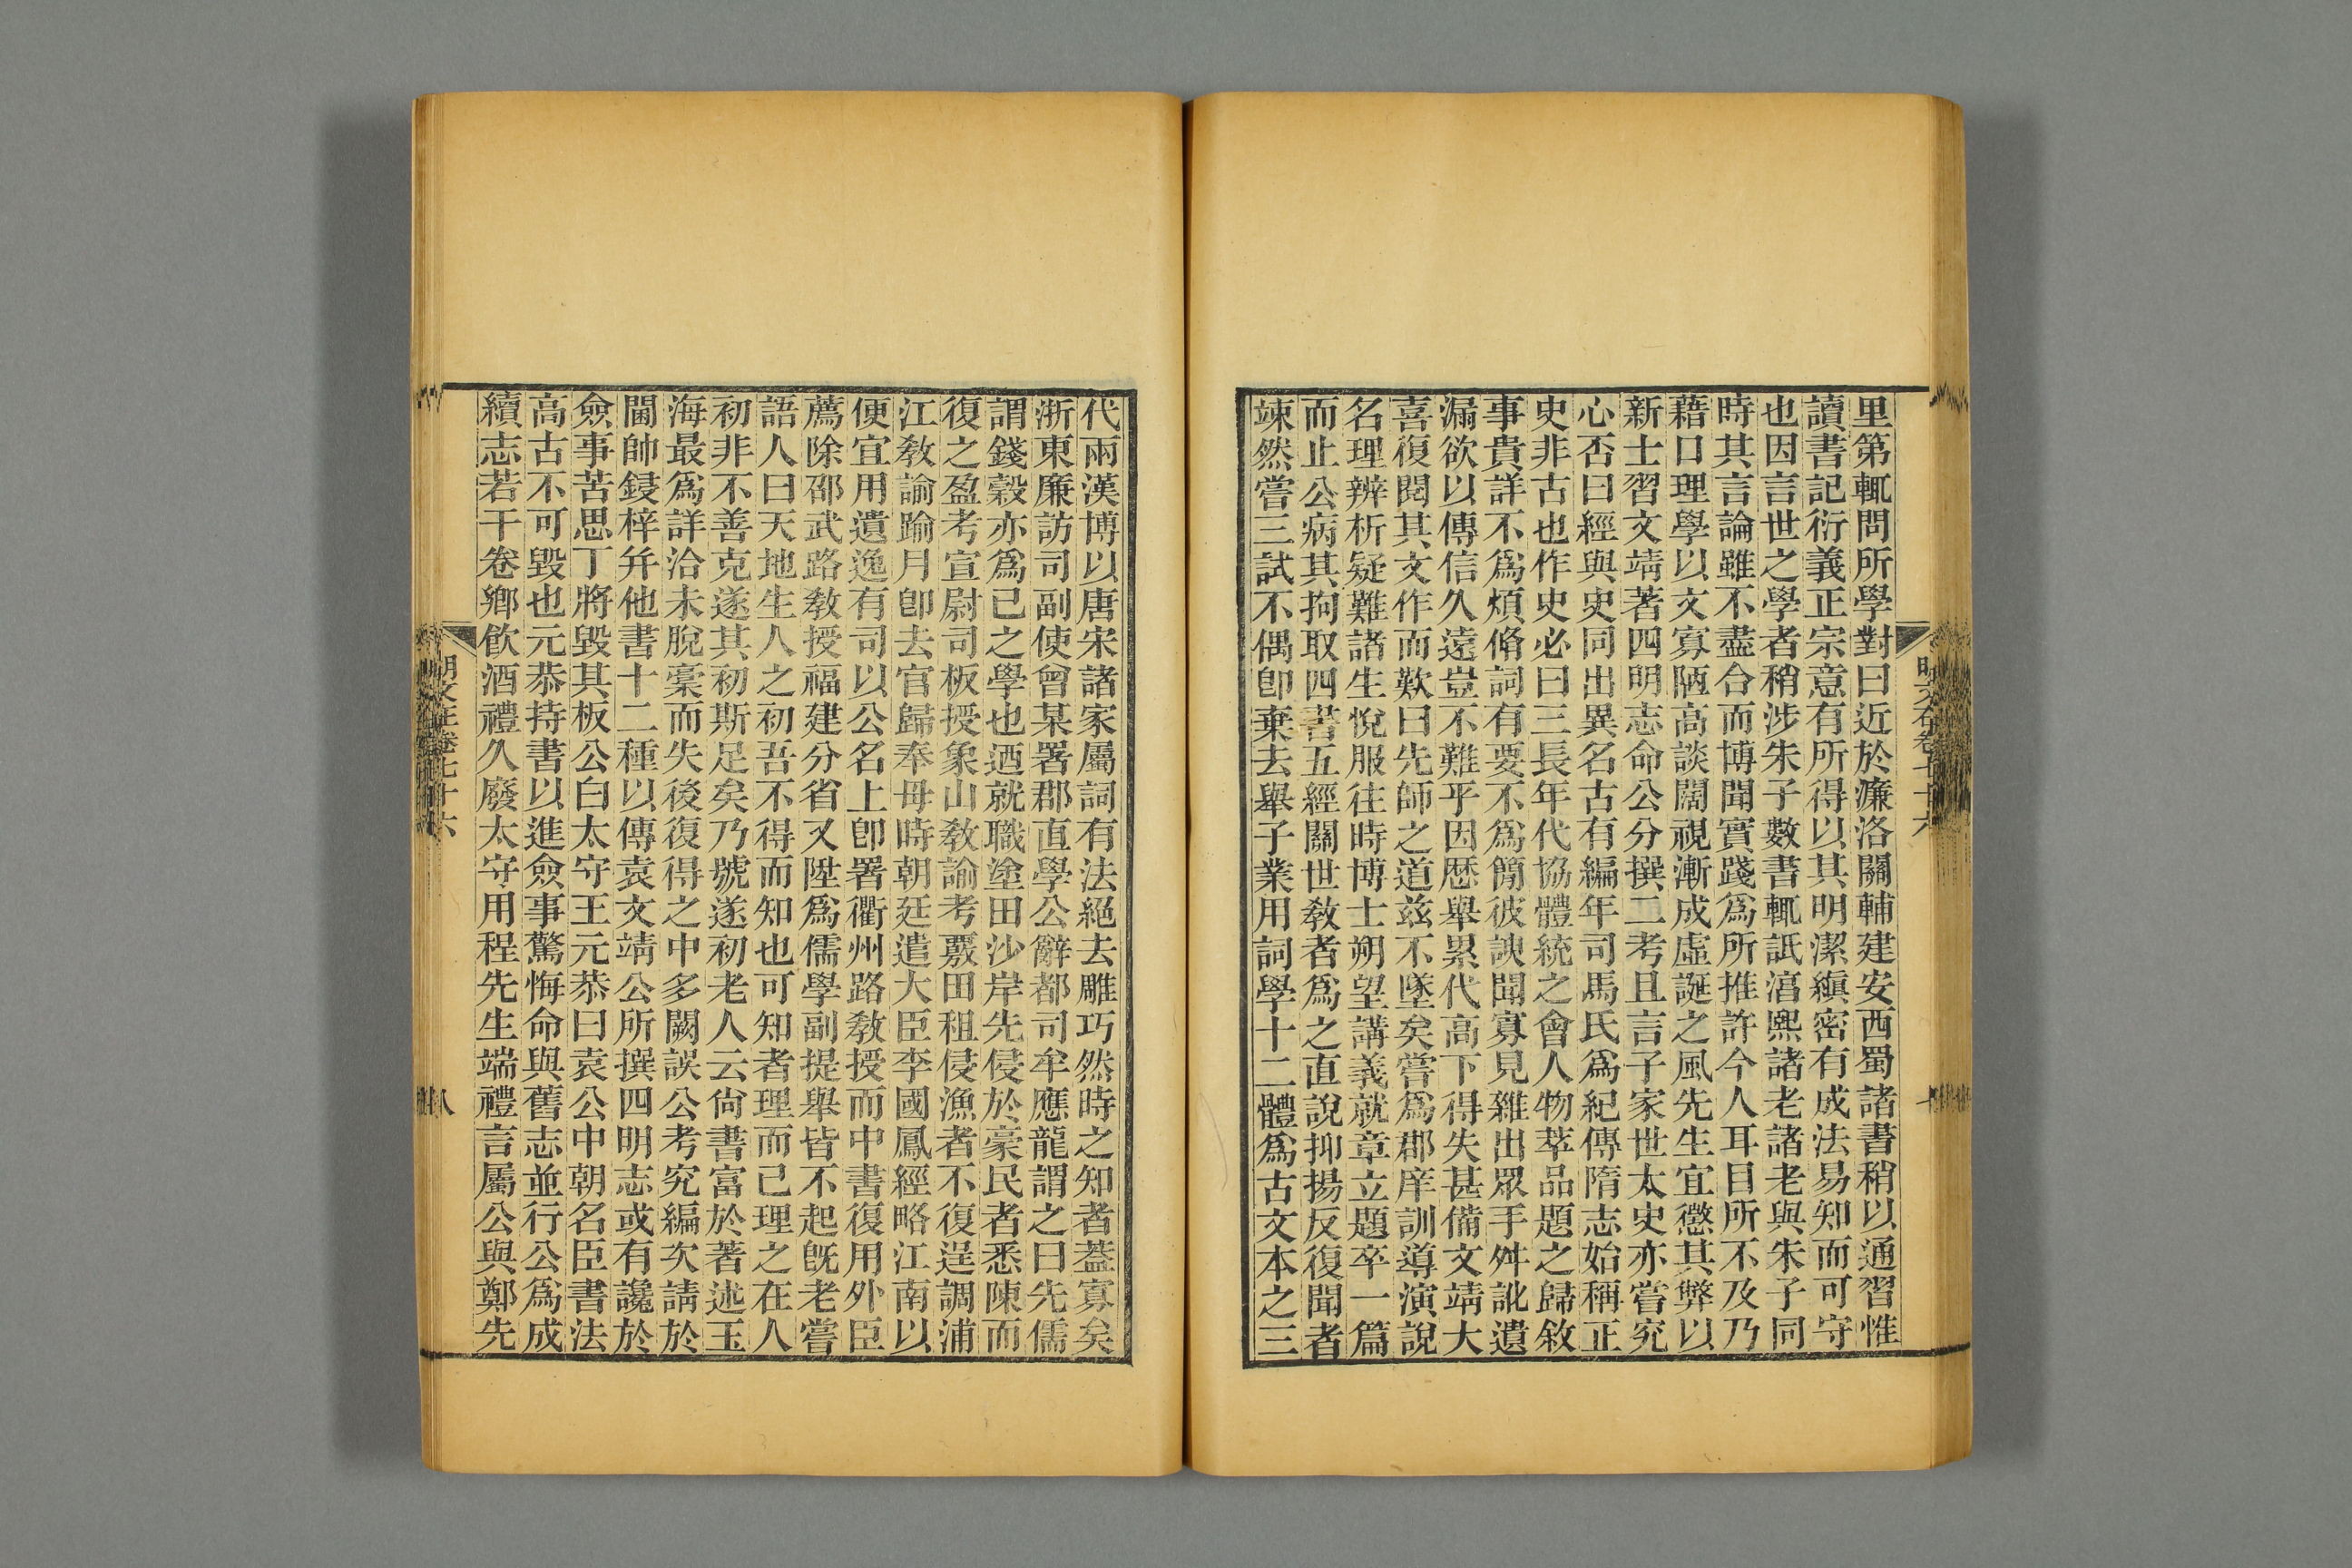 里第輒問所學對曰近於濂洛關輔建安西蜀諸書稍以通習惟
讀書記衍義正宗意有所得以其明潔縝密有成法易知而可守
也因言世之學者稍涉朱子數書輒詆㵎熙諸老諸老與朱子同
時其言論雖不盡合而博聞實踐爲所推許今人耳目所不及乃
藉口理學以文寡陋高談闊視漸成虛誕之風先生宜懲其弊以
新士習文靖著四明志命公分撰二考且言子家世太史亦嘗究
心否曰經與史同出異名古有編年司馬氏爲紀傳隋志始稱正
史非古也作史必曰三長年代協體統之會人物萃品題之歸敘
事貴詳不爲煩脩詞有要不爲簡彼諛聞寡見雜出眾手舛訛遺
漏欲以傳信久遠豈不難乎因歷舉累代高下得失甚備文靖大
喜復閱其文作而歎曰先師之道兹不墜矣嘗爲郡庠訓導演說
名理辨析疑難諸生悅服往時博士朔望講義就章立題卒一篇
而止公病其拘取四書五經關世教者爲之直說抑揚反復聞者
竦然嘗三試不偶卽棄去舉子業用詞學十二體爲古文本之三
代兩漢博以唐宋諸家屬詞有法絕去雕巧然時之知者葢寡矣
浙東廉訪司副使曾某署郡直學公辭都司牟應龍謂之曰先儒
謂錢穀亦爲己之學也迺就職塗田沙岸先侵於豪民者悉陳而
復之盈考宣尉司板授象山教諭考覈田租侵漁者不復逞調浦
江教諭踰月卽去官歸奉母時朝廷遣大臣李國鳳經略江南以
便宜用遺逸有司以公名上卽署衢州路教授而中書復用外臣
薦除邵武路教授福建分省又陞爲儒學副提舉皆不起旣老嘗
語人曰天地生人之初吾不得而知也可知者理而已理之在人
初非不善克遂其初斯足矣乃號遂初老人云尙書富於著述玉
海最爲詳洽未脫稾而失後復得之中多闕誤公考究編次請於
閫帥鋟梓幷他書十二種以傳袁文靖公所撰四明志或有讒於
僉事苦思丁將毀其板公白太守王元恭曰袁公中朝名臣書法
高古不可毀也元恭持書以進僉事驚悔命與舊志並行公爲成
續志若干卷鄉飮酒禮久廢太守用程先生端禮言屬公與鄭先